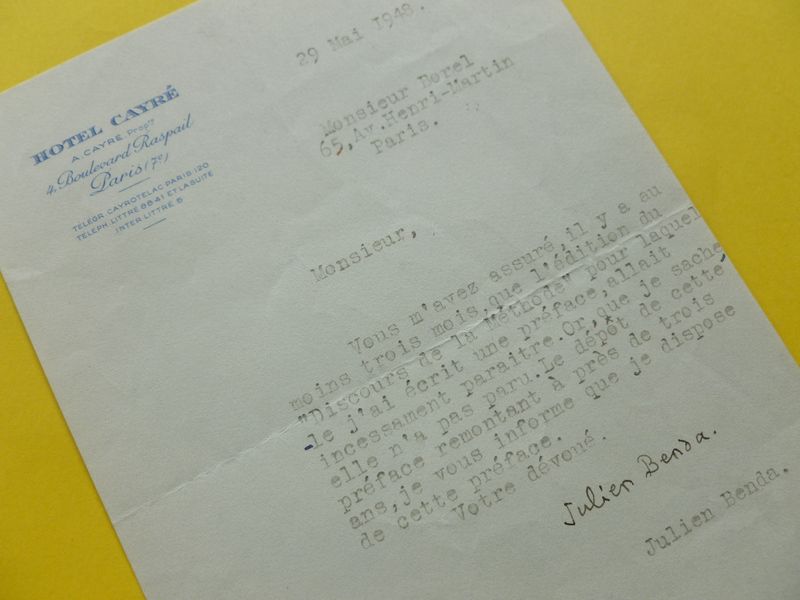 HOTEL CAYRÉ
A. CAYRÉ Propre
4, Boulevard Raspail
Paris (7e)
TÉLÉGR. CAYROTELAC PARIS 120
TÉLÉPH. LITTRÉ 88-41 ET LA SUITE
INTER LITTRÉ 6
29 Mai 1948.
Monsieur Borel
65,Av.Henri-Martin
Paris.
Monsieur,
Vous m'avez assuré,il y a au
moins trois mois,que l'édition du
"Discours de la Méthode" pour laquel
-le j'ai écrit une préface,allait
incessament paraitre.Or,que je sache
elle n'a pas paru.Le dépôt de cette
préface remontant à près de trois
ans,je vous informe que je dispose
de cette préface.
Votre dévoué.
Julien Benda.
Julien Benda.